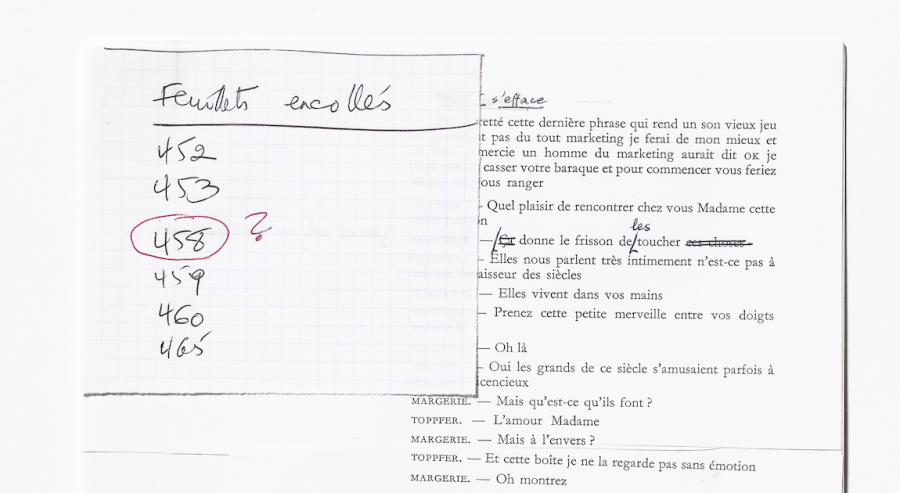 Feuillets encollés
452
453
458 ?
459
460
465
s'efface
retté cette dernière phrase qui rend un son vieux jeu
t pas du tout marketing je ferai de mon mieux et
mercie un homme du marketing aurait dit OK je
casser votre baraque et pour commencer vous feriez
ous ranger
- Quel plaisir de rencontrer chez vous Madame cette
n
les
— Ça donne le frisson de toucher ces choses
- Elles nous parlent très intimement n'est-ce pas à
aisseur des siècles
— Elles vivent dans vos mains
- Prenez cette petite merveille entre vos doigts
— Oh là
- Oui les grands de ce siècle s'amusaient parfois à
icencieux
MARGERIE. — Mais qu'est-ce qu'ils font ?
TOPPFER. — L'amour Madame
MARGERIE. — Mais à l'envers ?
TOPPFER. — Et cette boîte je ne la regarde pas sans émotion
MARGERIE. — Oh montrez